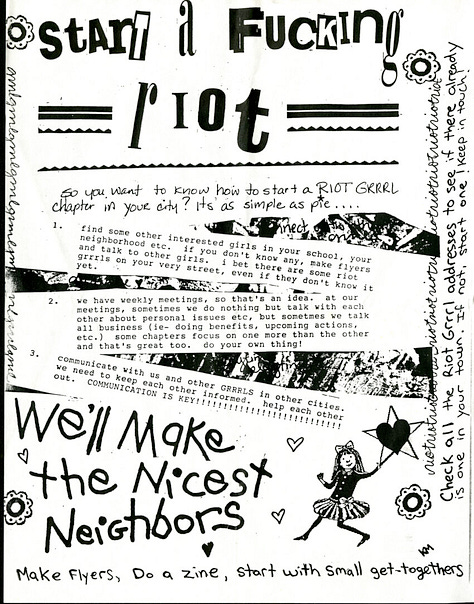 START a FUCKING
RIOT
so you want to know how to start a RIOT GRRRL
chapter in your city? It's as simple as pie....
1. find some other interested girls in your school, your
neighborhood etc. if you don't know any, make flyers
and talk to other girls. i bet there are some riot
grrrls on your very street, even if they don't know it
yet.
2. we have weekly meetings, so that's an idea. at our
meetings, sometimes we do nothing but talk with each
other about personal issues etc, but sometmes we talk
all business (ie- doing benefits, upcoming actions,
etc.) some chapters focus on one more than the other
and that's great too. do your own thing!
3. communicate with us and other GRRRLS in other cities.
we need to keep each other informed. help each other
out. COMMUNICATION IS KEY!!!!!!!!!!!!!!!!!!!!!!!!!
We'll Make
the Nicest
Neighbors
Make Flyers, Do a zine, start with small get-togethers
riotriotriotriotriotriotriotriotriot
Check all the Riot Grrrl addresses to see if there already
is one in your town. If not, start one! Keep in touch!